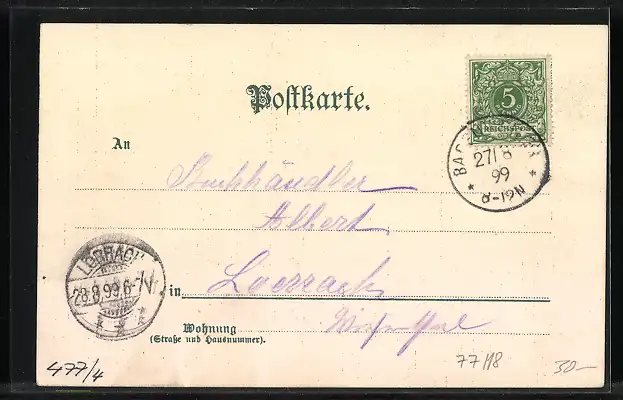 Postkarte.
5
REICHSPOST
27/8
99
8-19N
An
Buchhändler
Albert
LÖRRACH
28.8.99.6-7V.
in Loerrach
Wiesenthal
Wohnung
(Straße und Hausnummer).
477/4
77/18
30-